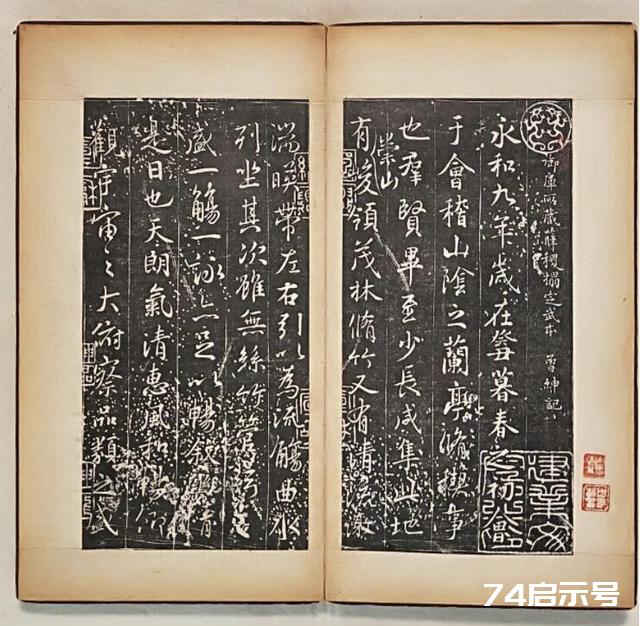 御庫所藏薛稷搨定武本 曾紳記
永和九年歲在癸丑暮春之初會
于會稽山陰之蘭亭脩稧事
也羣賢畢至少長咸集此地
有崇山峻領茂林脩竹又有清流激
湍暎帶左右引以為流觴曲水
列坐其次雖無絲竹管弦之
盛一觴一詠亦足以暢敘幽情
是日也天朗氣清惠風和暢仰
觀宇宙之大俯察品類之盛
74启示号